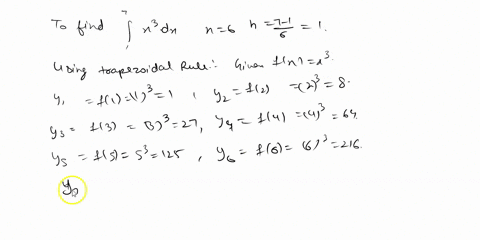 To find ∫₁⁷ x³dx n=6 h = 7-1/6 = 1.
Using trapezoidal Rule: Given f(x)=x³.
y₁ = f(1) = (1)³ = 1 , y₂ = f(2) = (2)³ = 8.
y₃ = f(3) = (3)³ = 27, y₄ = f(4) = (4)³ = 64.
y₅ = f(5) = 5³ = 125 , y₆ = f(6) = (6)³ = 216.
y